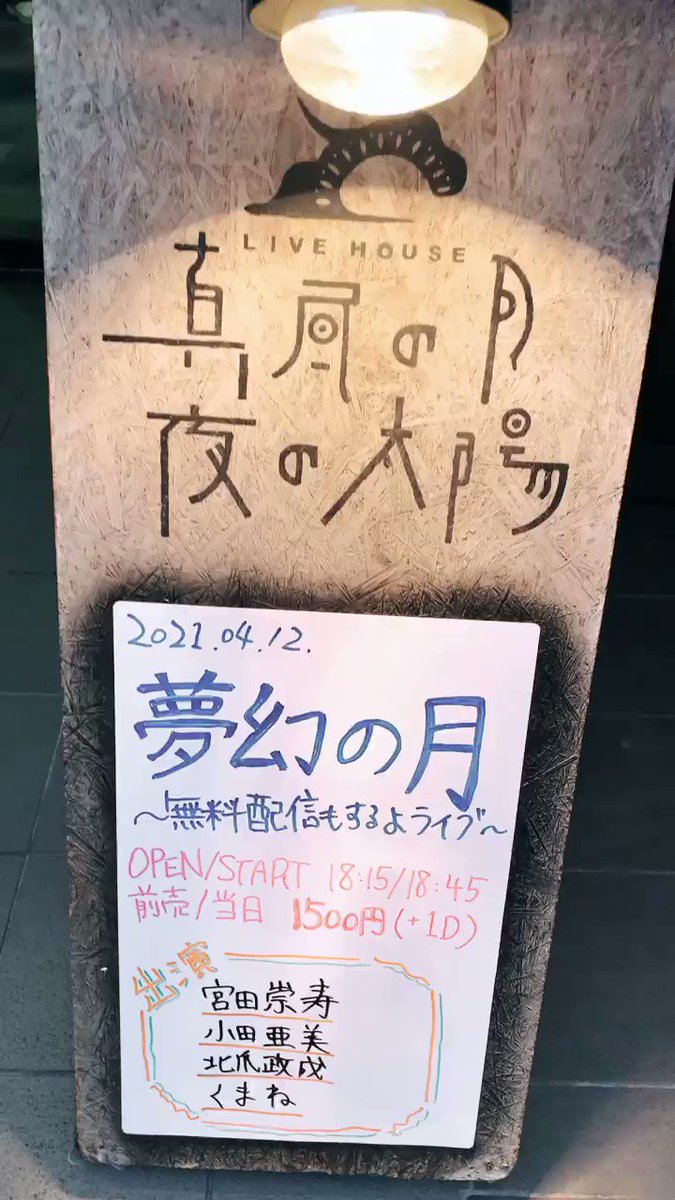 LIVE HOUSE
真昼の月
夜の太陽
2021.04.12.
夢幻の月
~無料配信もするよライブ~
OPEN/START 18:15/18:45
前売/当日 1500円(+1D)
出演
宮田崇寿
小田亜美
北爪政成
くまね